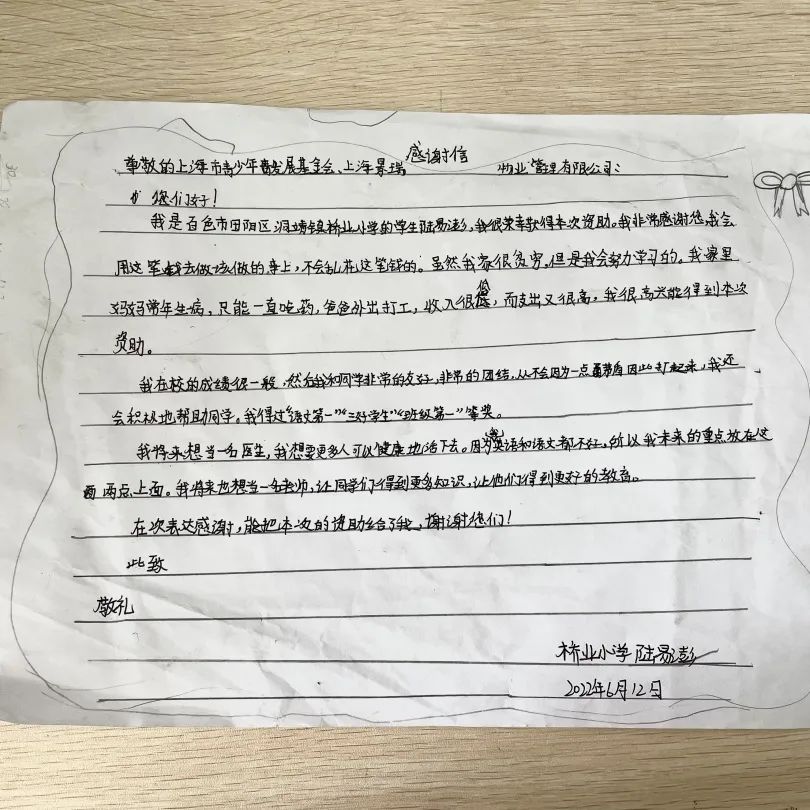 感谢信
尊敬的上海市青少年发展基金会、上海景瑞物业管理有限公司:
您们好!
我是百色市田阳区洞靖镇桥业小学的学生陆易澎,我很荣幸获得本次资助。我非常感谢您,我会
用这笔钱去做该做的事上,不会乱花这笔钱的。虽然我家很贫穷,但是我会努力学习的。我家里
妈妈常年生病,只能一直吃药,爸爸外出打工,收入很低,而支出又很高,我很高兴能得到本次
资助。
我在校的成绩很一般,然后我和同学非常的友好,非常的团结,从不会因为一点矛盾因此打起来,我还
会积极地帮助同学。我得过“语文第一”“三好学生”“班级第一”等奖。
我将来想当一名医生,我想要更多人可以健康地活下去。因为英语和语文都不好,所以我未来的重点放在这
两点上面。我将来也想当一名老师,让同学们得到更多知识,让他们得到更好的教育。
在次表达感谢,能把本次的资助给了我,谢谢您们!
此致
敬礼
桥业小学陆易澎
2022年6月12日